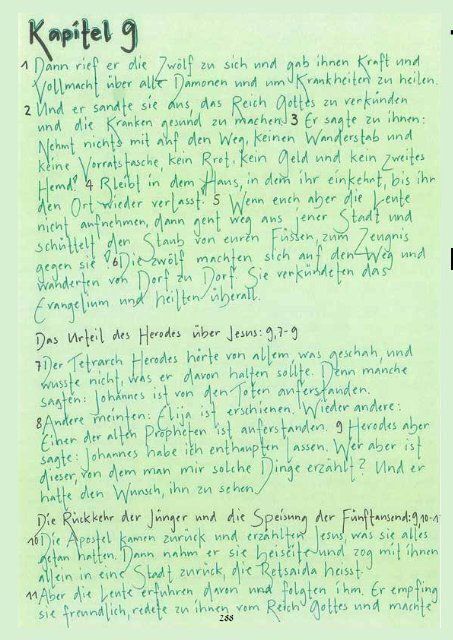 Kapitel 9
1 Dann rief er die Zwölf zu sich und gab ihnen Kraft und
Vollmacht über alle Dämonen und um Krankheiten zu heilen.
2 Und er sandte sie aus, das Reich Gottes zu verkünden
und die Kranken gesund zu machen. 3 Er sagte zu ihnen:
Nehmt nichts mit auf den Weg, keinen Wanderstab und
keine Vorratstasche, kein Brot, kein Geld und kein zweites
Hemd. 4 Bleibt in dem Haus, in dem ihr einkehrt, bis ihr
den Ort wieder verlasst. 5 Wenn euch aber die Leute
nicht aufnehmen, dann geht weg aus jener Stadt und
schüttelt den Staub von euren Füssen, zum Zeugnis
gegen sie. 6 Die zwölf machten sich auf den Weg und
wanderten von Dorf zu Dorf. Sie verkündeten das
Evangelium und heilten überall.
Das Urteil des Herodes über Jesus: 9,7-9
7 Der Tetrarch Herodes hörte von allem, was geschah, und
wusste nicht, was er davon halten sollte. Denn manche
sagten: Johannes ist von den Toten auferstanden.
8 Andere meinten: Elija ist erschienen. Wieder andere:
Einer der alten Propheten ist auferstanden. 9 Herodes aber
sagte: Johannes habe ich enthaupten lassen. Wer aber ist
dieser, von dem man mir solche Dinge erzählt? Und er
hatte den Wunsch, ihn zu sehen.
Die Rückkehr der Jünger und die Speisung der Fünftausend: 9,10-1
10 Die Apostel kamen zurück und erzählten Jesus, was sie alles
getan hatten. Dann nahm er sie beiseite und zog mit ihnen
allein in eine Stadt zurück, die Betsaida heisst.
11 Aber die Leute erfuhren davon und folgten ihm. Er empfing
sie freundlich, redete zu ihnen vom Reich Gottes und machte
288